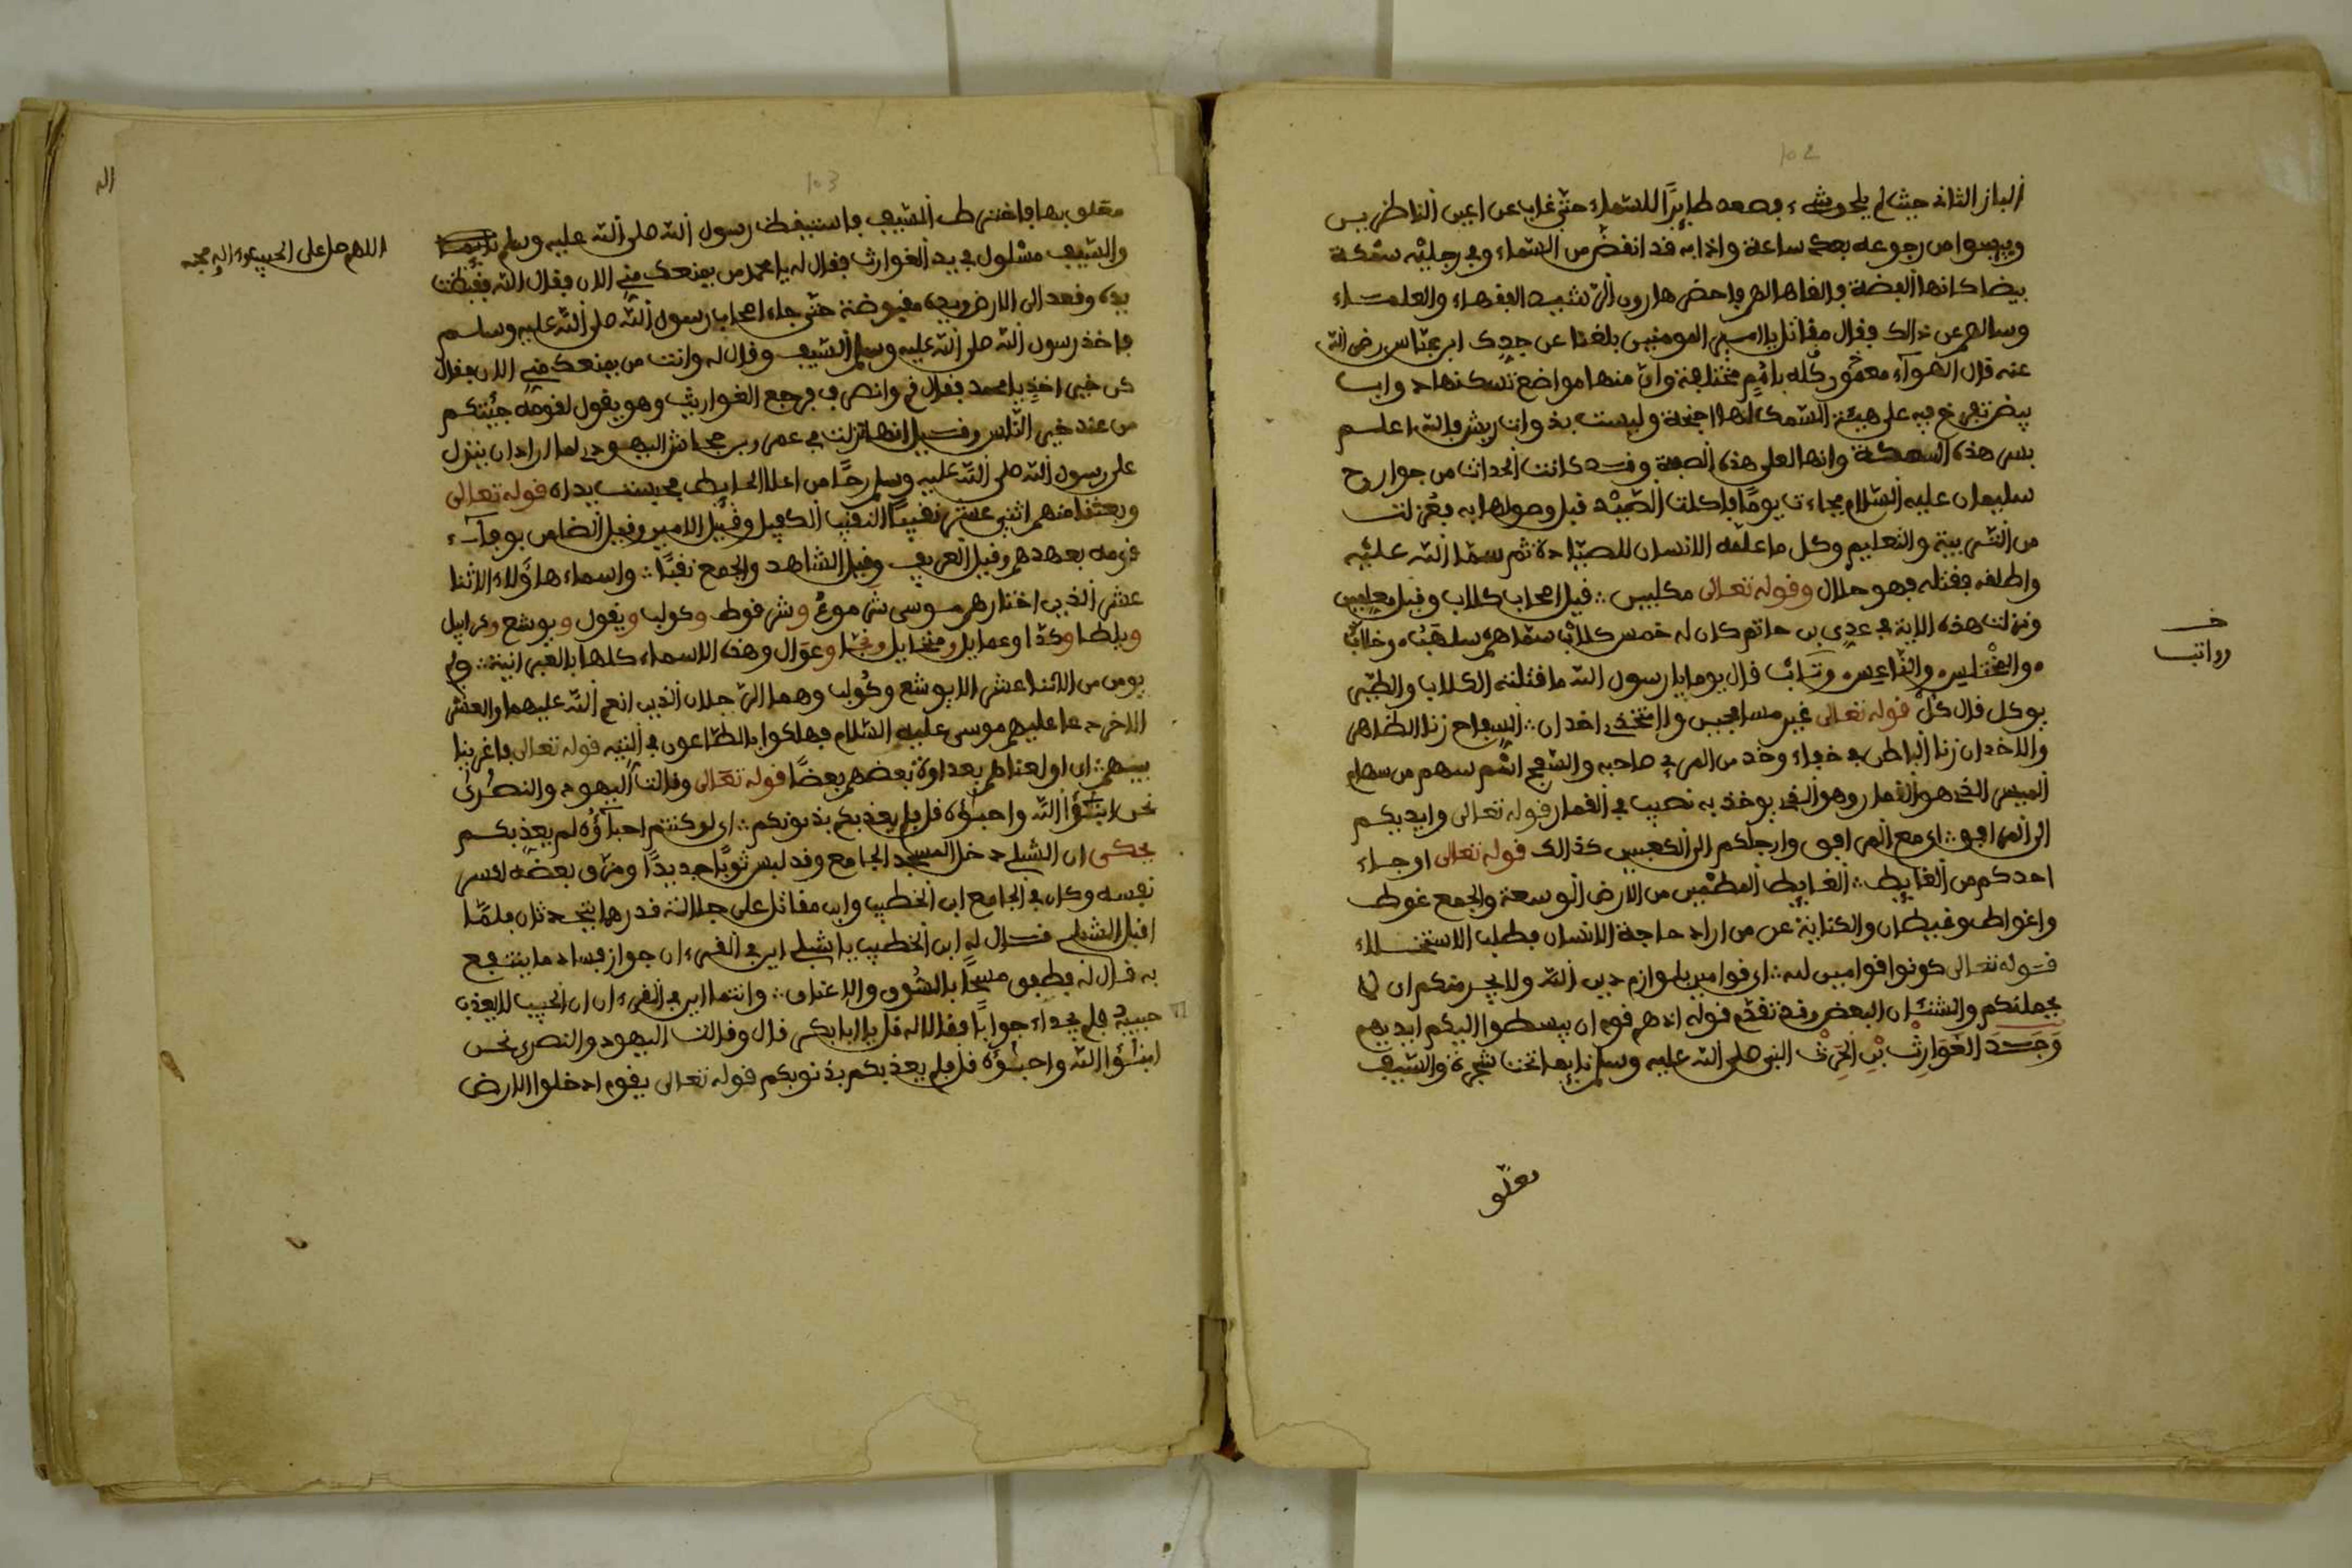 102
البازالثانى حيث لم يلحق شيء فصعد طايرًا للسماء حتى غاب عن اعين الناظرين
ويبسوا من رجوعه بعد ساعة واذا به قد انقض من السماء وفي رجليه سمكة
بيضا كانها الفضة فالقاها لهم فاحضر هارون الرشيد الفقهاء والعلماء
وسالهم عن ذالك فقال مقاتل يا امير المومنين بلغنا عن جدك ابن عباس رضي الله
عنه قال الهواء معمور كله بامم مختلفة وان منها مواضع تسكنها دواب
بيض تفرخ فيه على هيئة السمك لها اجنحة وليست بذوات ريش فالله اعلم
بين هذه السمكة وانها لعلى هذه الصفة وقد كانت الحداث من جوارح
سليمان عليه السلام فجاءت يومًا فاكلت الصيد قبل وصولها به فعزلت
من التربية والتعليم وكل ما علمه الانسان للصيادة ثم سما الله عليه
واطلقه فقتله فهو حلال وقوله تعالى مكلبين قيل اصحاب كلاب وقيل معلمين
ونزلت هذه الاية في عدي بن حاتم كان له خمس كلاب سماهم سلهب وخلاب
والمختلس والفاعس وتاب قال يوما يا رسول الله ما قتلته الكلاب والطير
يوكل قال كل قوله تعالى غير مسافحين ولا متخذي اخدان السفاح زنا الظاهر
والاخدان زنا الباطن في خفاء وخد من المرء صاحبه والشح اسم سهم من سهام
الميسر الذي هو القمار وهو الذي يوخذ به نصيب في القمار قوله تعالى وايديكم
الى المرافق اي مع المرافق وارجلكم الى الكعبين كذالك قوله تعالى او جاء
احدكم من الغايط الغايط المطمين من الارض الوسعة والجمع غوط
واغواط وغيطان والكناية عن من اراد حاجة الانسان بطلب الاستخلاء
قوله تعالى كونوا قوامين لله اي قوامين بلوازم دين الله ولا يجرمنكم اي لا
يحملنكم والشنئان البغض وقد تقدم قوله اذ هم قوم ان يبسطوا اليكم ايديهم
وجد الغوارث بن الحرث النبي صلى الله عليه وسلم نايما تحت شجرة والسيف
معلق
خ
رواتب
103
معلق بها فاخترط السيف فاستيقظ رسول الله صلى الله عليه وسلم
والسيف مسلول في يد الغوارث فقال له يا محمد من يمنعك مني الان فقال الله فقبضت
يده وقعد الى الارض ويده مقبوضة حتى جاء اصحاب رسول الله صلى الله عليه وسلم
فاخذ رسول الله صلى الله عليه وسلم السيف وقال له وانت من يمنعك مني الان فقال
كن خير اخذ يا محمد فقال قم وانصرف فرجع الغوارث وهو يقول لقومه جئتكم
من عند خير الناس وقيل انها نزلت في عمرو بن جحاش اليهودي لما اراد ان ينزل
على رسول الله صلى الله عليه وسلم رحًا من اعلا الحايط فيبست يداه قوله تعالى
وبعثنا منهم اثني عشر نقيبًا النقيب الكفيل وقيل الامين وقيل الضامن بوفاء
قومه بعهدهم وقيل العريف وقيل الشاهد والجمع نقبًا واسماء هاؤلاء الاثنا
عشر الذين اختارهم موسى شموع وشرقوط وكولب ويقول ويوشع وكرابيل
ويلطا وكدا وعمايل ومنخايل ونحبا وعوال وهذه الاسماء كلها بالعبرانية ولم
يومن من الاثنا عشر الا يوشع وكولب وهما الرجلان الذين انعم الله عليهما والعشر
الاخر دعا عليهم موسى عليه السلام فهلكوا بالطاعون في التيه قوله تعالى فاغرينا
بينهم اي اولعناهم بعداوة بعضهم بعضًا قوله تعالى وقالت اليهود والنصرى
نحن ابنؤا الله واحبؤه قل فلم يعذبكم بذنوبكم اي لو كنتم احباؤه لم يعذبكم
يحكى ان الشبلي دخل المسجد الجامع وقد لبس ثوبًا جديدًا ومزق بعضه لكسر
نفسه وكان في الجامع ابن الخطيب وابن مقاتل على جلالة قدرهما يتحدثان فلما
اقبل الشبلي قال له ابن الخطيب يا شبلي اين في القرءان جواز فساد ما ينتفع
به قال له فطفق مسحًا بالسوق والاعناق وانتما اين في القرءان ان الحبيب لا يعذب
حبيبه فلم يجداه جوابًا فقالا له قل يا ابا بكر قال وقالت اليهود والنصرى نحن
ابنؤا الله واحبؤه قل فلم يعذبكم بذنوبكم قوله تعالى يقوم ادخلوا الارض
اللهم صل على الحبيب
اله